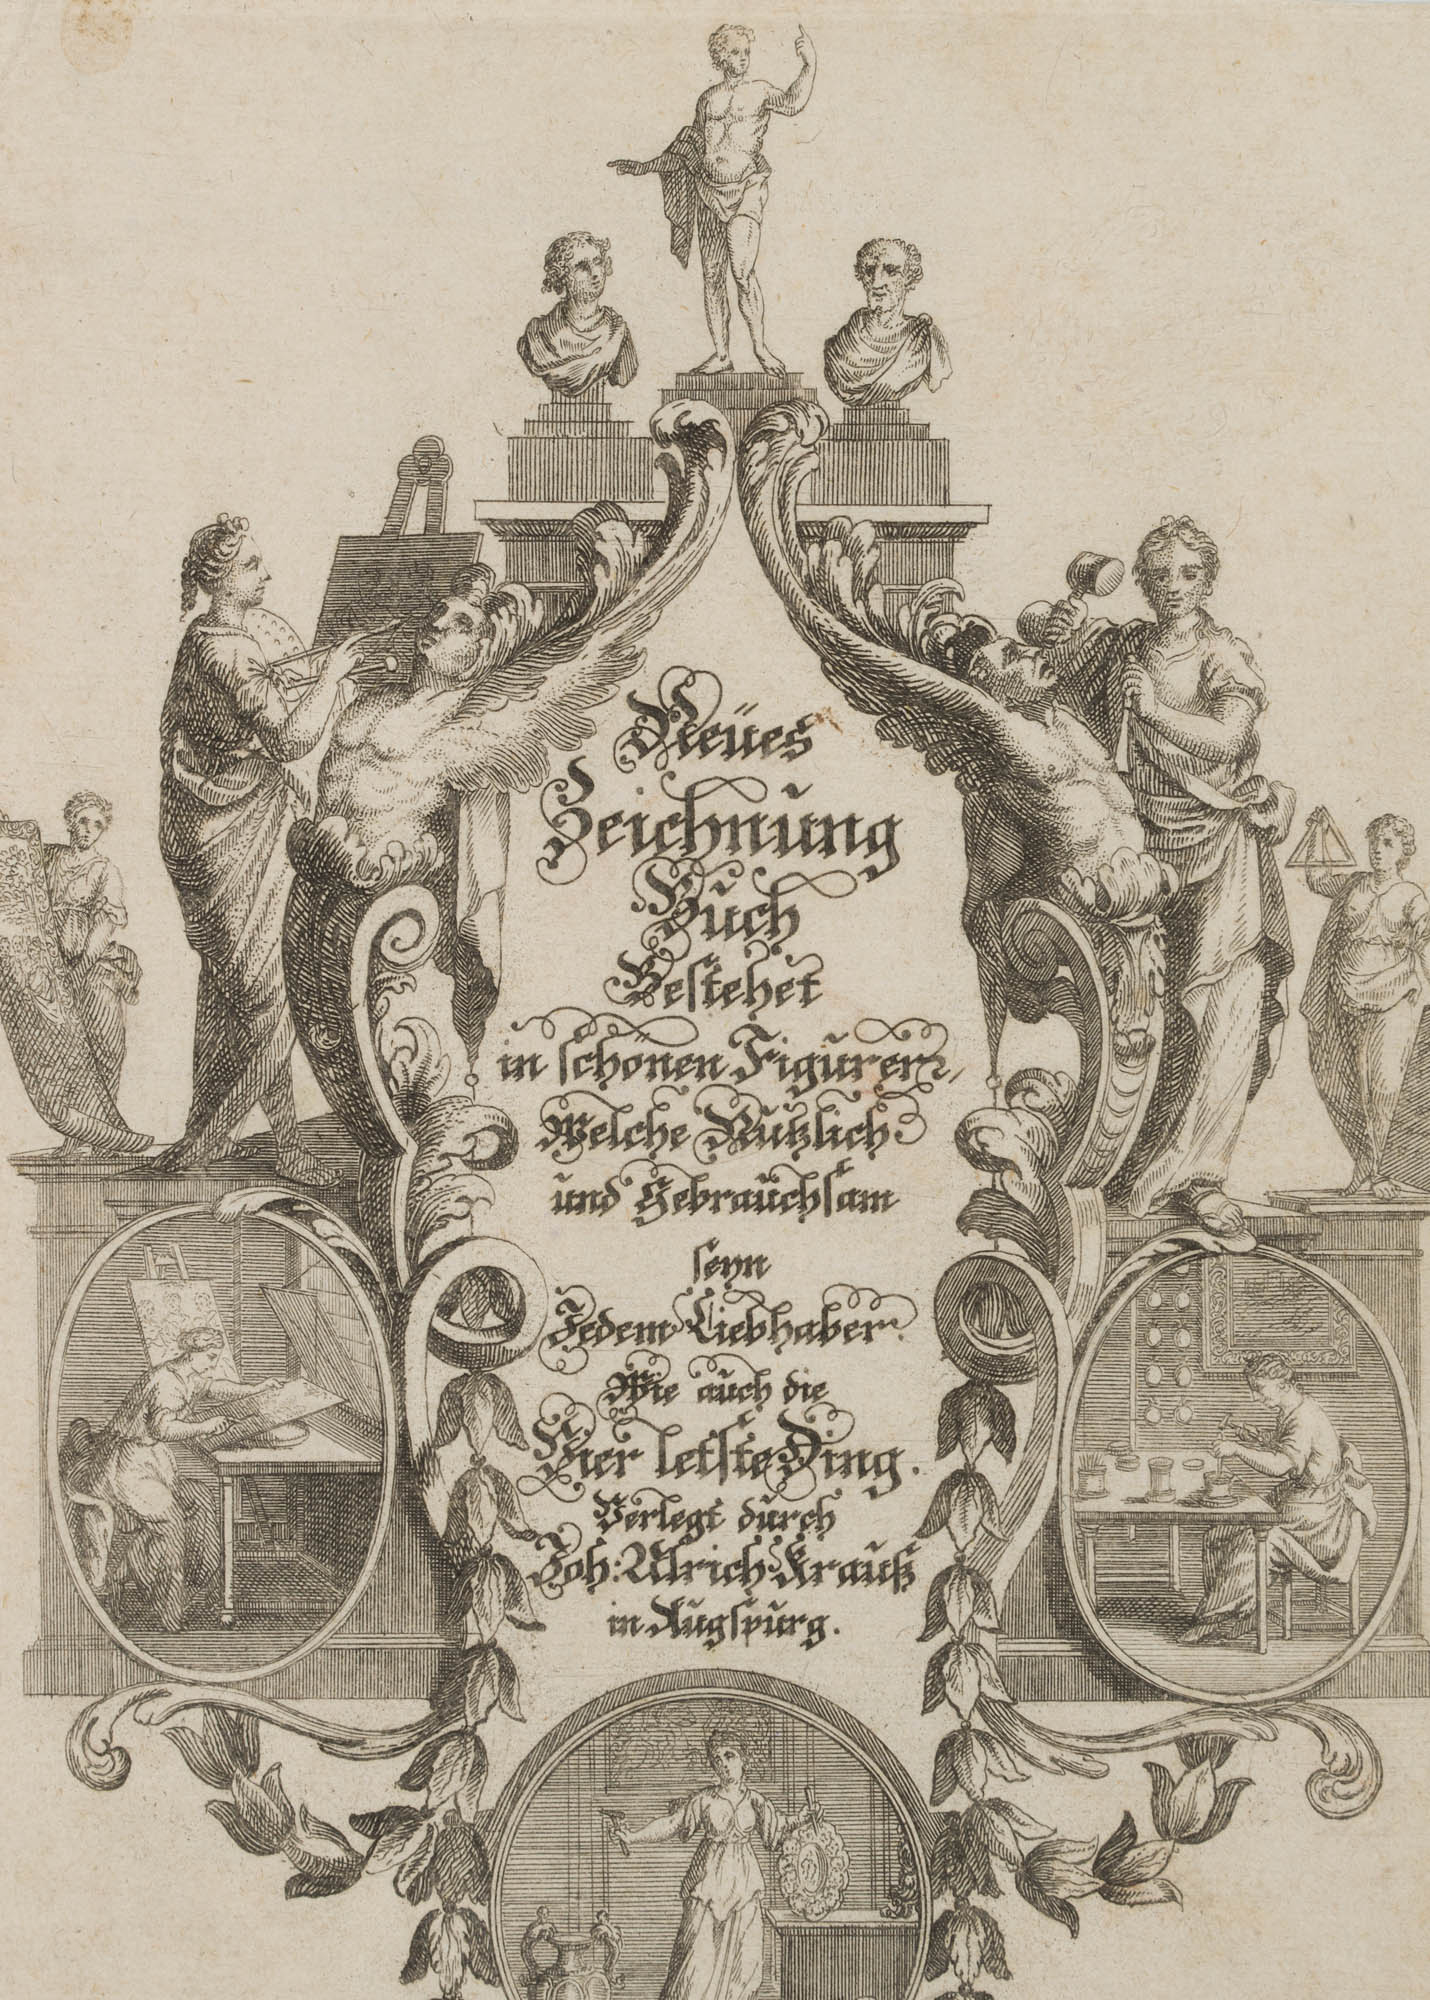 Neües
Zeichnŭng
Bŭch
Bestehet
in schönen Figŭren,
Welche Nŭtzlich
ŭnd Gebraŭchsam
seyn
Jedem Liebhaber.
Wie aŭch die
Vier letste Ding.
Verlegt dŭrch
Joh: Ulrich Kraŭß
in Aŭgspŭrg.